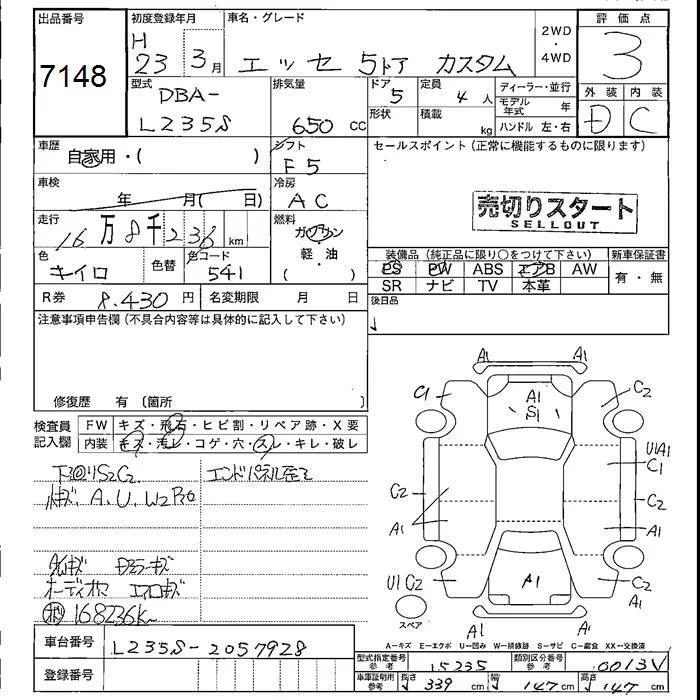 出品番号
7148
初度登録年月
H
23 3月
車名・グレード
エッセ 5ドア カスタム
2WD
・
4WD
評価点
3
型式
DBA-
L235S
排気量
650 cc
ドア
5
形状
定員
4人
積載
kg
ディーラー・並行
モデル年式 年
ハンドル 左・右
外装 内装
D C
車歴
自家用・( )
シフト
F5
セールスポイント(正常に機能するものに限ります)
車検
年 月( 日)
冷房
AC
売切りスタート
SELLOUT
走行
16万8千236km
燃料
ガソリン
・軽・油
( )
色
キイロ
色替
色コード
541
装備品(純正品に限り○をつけて下さい)
新車保証書
PS PW ABS エアB AW
SR ナビ TV 本革
有・無
R券 8.430円
名変期限 月 日
後日品
注意事項申告欄(不具合内容等は具体的に記入して下さい)
修復歴 有(箇所 )
検査員
記入欄
FW キズ・飛石・ヒビ割・リペア跡・X要
内装 キズ・汚レ・コゲ・穴・スレ・キレ・破レ
下回りS2C2
エンドパネル歪ミ
A.U.W2
キズ
オーディオ
168236k
A1 A1
C1 A1 C2
S1
U1A1
C1
C2 C2
A1 A1
U1C2 A1 C2
A1
スペア
A1 A1
A−キズ E−エクボ U−凹み W−補修跡 S−サビ C−腐食 XX−交換済
車台番号 L235S-2057928
型式指定番号
参考
15235
類別区分番号
参考
0013
登録番号
車庫証明用
参考
長さ 339 cm 幅 147 cm 高さ 147 cm